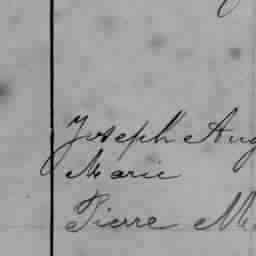 Joseph Aug
Marie
Pierre M